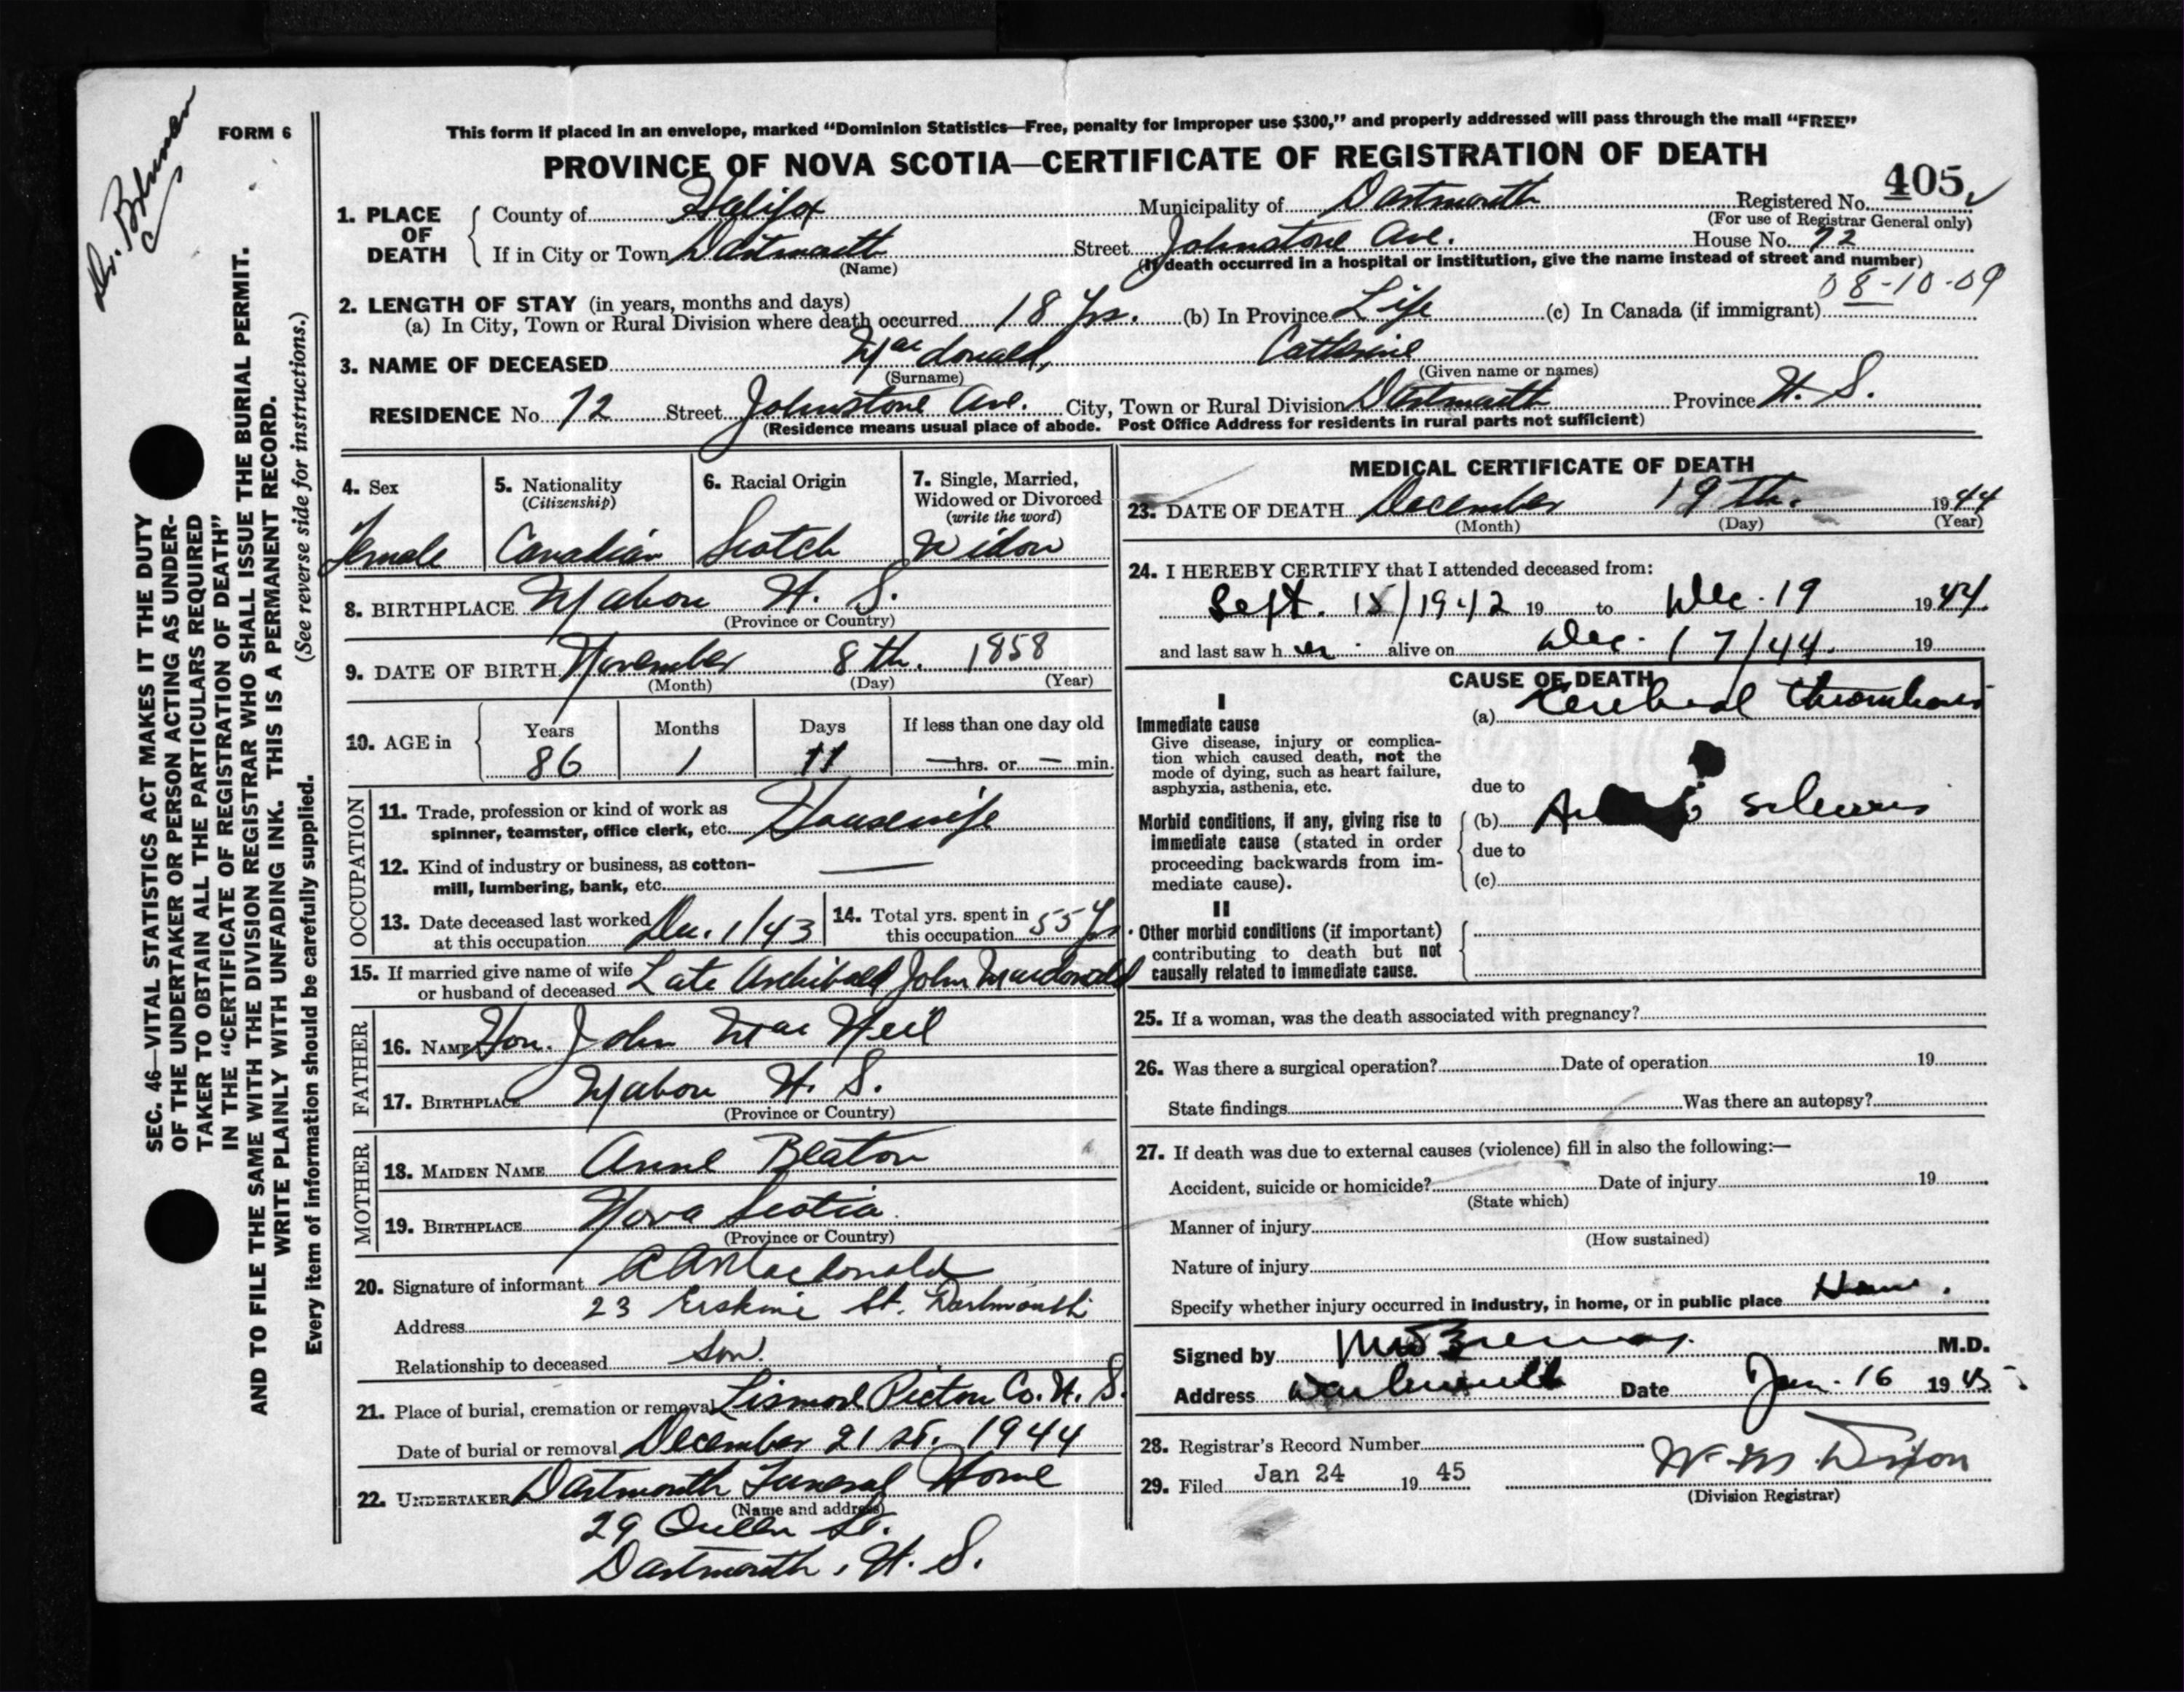 Dr.
FORM 6
This form if placed in an envelope, marked “Dominion Statistics—Free, penalty for improper use $300,” and properly addressed will pass through the mail “FREE”
PROVINCE OF NOVA SCOTIA—CERTIFICATE OF REGISTRATION OF DEATH
405
1. PLACE OF DEATH County of Halifax Municipality of Dartmouth Registered No.
(For use of Registrar General only)
If in City or Town Dartmouth Street Johnstone Ave. House No. 72
(Name) (If death occurred in a hospital or institution, give the name instead of street and number)
08-10-09
2. LENGTH OF STAY (in years, months and days)
(a) In City, Town or Rural Division where death occurred 18 Yrs. (b) In Province Life (c) In Canada (if immigrant)
3. NAME OF DECEASED MacDonald, Catherine
(Surname) (Given name or names)
RESIDENCE No. 72 Street Johnstone Ave. City, Town or Rural Division Dartmouth Province N. S.
(Residence means usual place of abode. Post Office Address for residents in rural parts not sufficient)
4. Sex Female
5. Nationality (Citizenship) Canadian
6. Racial Origin Scotch
7. Single, Married, Widowed or Divorced (write the word) Widow
8. BIRTHPLACE Mabou N. S.
(Province or Country)
9. DATE OF BIRTH November 8th. 1858
(Month) (Day) (Year)
10. AGE in Years 86 Months 1 Days 11 If less than one day old — hrs. or — min.
OCCUPATION
11. Trade, profession or kind of work as
spinner, teamster, office clerk, etc. Housewife
12. Kind of industry or business, as cotton-
mill, lumbering, bank, etc. —
13. Date deceased last worked
at this occupation Dec. 1/43
14. Total yrs. spent in
this occupation 55 Yrs.
15. If married give name of wife
or husband of deceased Late Archibald John Macdonald
FATHER
16. NAME Hon. John MacNeil
17. BIRTHPLACE Mabou N. S.
(Province or Country)
MOTHER
18. MAIDEN NAME Anne Beaton
19. BIRTHPLACE Nova Scotia
(Province or Country)
20. Signature of informant A A MacDonald
Address 23 Erskine St. Dartmouth
Relationship to deceased Son.
21. Place of burial, cremation or removal Lismore Pictou Co. N. S.
Date of burial or removal December 21st. 1944
22. UNDERTAKER Dartmouth Funeral Home
(Name and address)
29 Queen St.
Dartmouth, N. S.
MEDICAL CERTIFICATE OF DEATH
23. DATE OF DEATH December 19Th. 1944
(Month) (Day) (Year)
24. I HEREBY CERTIFY that I attended deceased from:
Sept. 18/1942 19 to Dec. 19 1944.
and last saw her alive on Dec. 17/44. 19
CAUSE OF DEATH
I
Immediate cause
Give disease, injury or complica-
tion which caused death, not the
mode of dying, such as heart failure,
asphyxia, asthenia, etc.
(a) Cerebral thrombosis
due to
Morbid conditions, if any, giving rise to
immediate cause (stated in order
proceeding backwards from im-
mediate cause).
(b) sclerosis
due to
(c)
II
Other morbid conditions (if important)
contributing to death but not
causally related to immediate cause.
25. If a woman, was the death associated with pregnancy?
26. Was there a surgical operation? Date of operation 19
State findings Was there an autopsy?
27. If death was due to external causes (violence) fill in also the following:—
Accident, suicide or homicide? Date of injury 19
(State which)
Manner of injury
(How sustained)
Nature of injury
Specify whether injury occurred in industry, in home, or in public place Home.
Signed by M.D.
Address Dartmouth Date Jan. 16 1945
28. Registrar's Record Number
29. Filed Jan 24 19 45 W. M. Dixon
(Division Registrar)
SEC. 46—VITAL STATISTICS ACT MAKES IT THE DUTY
OF THE UNDERTAKER OR PERSON ACTING AS UNDER-
TAKER TO OBTAIN ALL THE PARTICULARS REQUIRED
IN THE “CERTIFICATE OF REGISTRATION OF DEATH”
AND TO FILE THE SAME WITH THE DIVISION REGISTRAR WHO SHALL ISSUE THE BURIAL PERMIT.
WRITE PLAINLY WITH UNFADING INK. THIS IS A PERMANENT RECORD.
Every item of information should be carefully supplied. (See reverse side for instructions.)